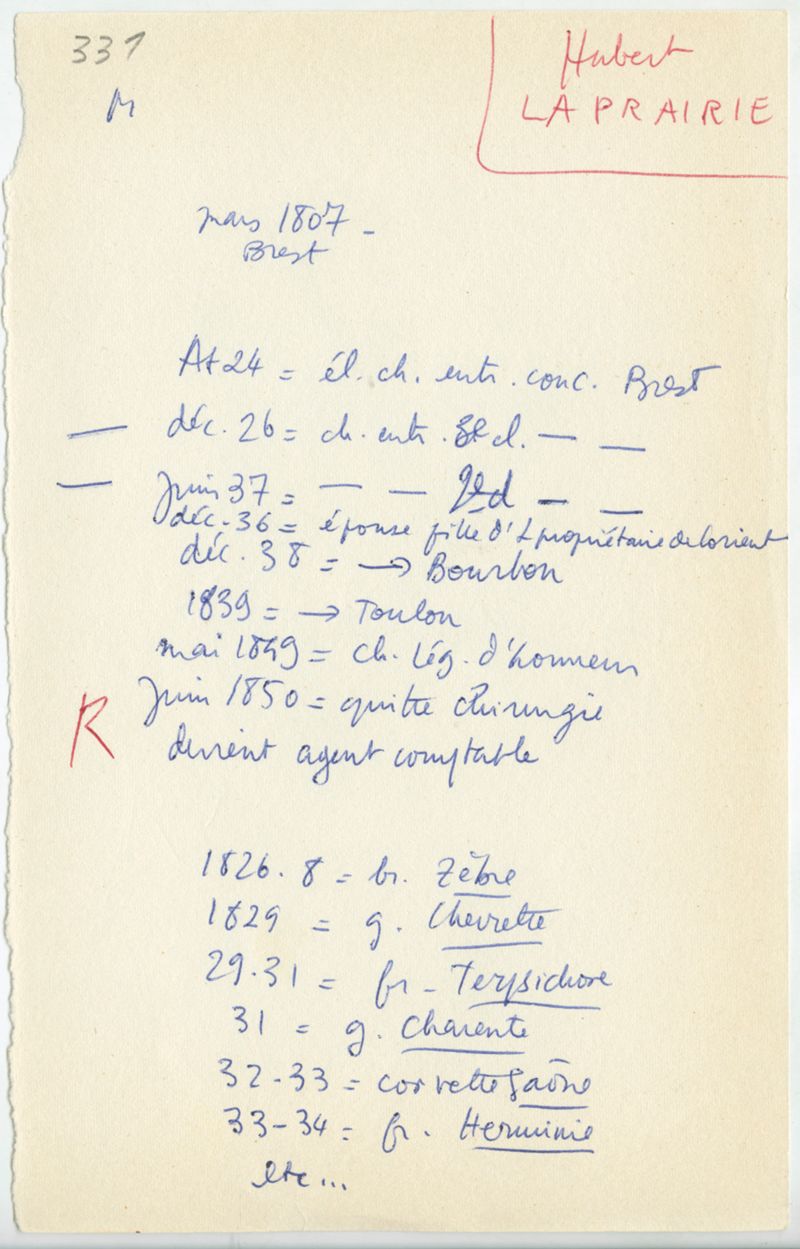 331
M
Hubert
LAPRAIRIE
mars 1807 -
Brest
At 24 = él. ch. entr. conc. Brest
— déc. 26 = ch. entr. 3e cl. — —
— Juin 37 = — — 2e cl — —
déc. 36 = épouse fille d'1 propriétaire de Lorient
déc. 38 = → Bourbon
1839 = → Toulon
mai 1849 = ch. Lég. d'honneur
Juin 1850 = quitte chirurgie
R
devient agent comptable
1826.8 = br. Zèbre
1829 = g. Chevrette
29.31 = fr - Terpsichore
31 = g. Charente
32-33 = corvette Saône
33-34 = fr. Herminie
etc...